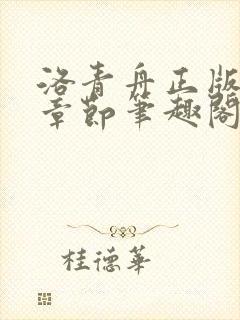 洛青舟正版
章節筆趣閣
桂德華